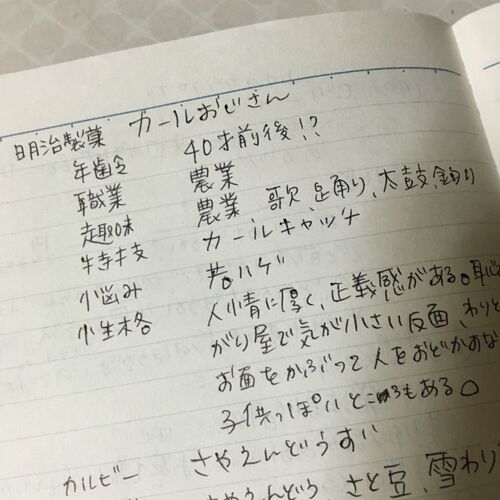 明治製菓 カールおじさん
年齢 40才前後!?
職業 農業
趣味 農業、歌、踊り、太鼓、釣り
特技 カールキャッチ
悩み 若ハゲ
性格 人情に厚く、正義感がある。恥
がり屋で気が小さい反面、わりと
お面をかぶって人をおどかすな
子供っぽいところもある。
さやえんどうすい
カルビー
さやえんどう、さと豆、雪わり